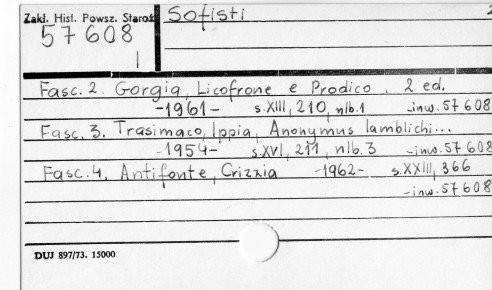 Zakł. Hist. Powsz. Staroż
57608
1
Sofisti
Fasc. 2. Gorgia, Licofrone e Prodico. 2 ed.
-1961- s.XIII, 210, nlb.1 -inw. 57 608
Fasc. 3. Trasimaco, Ippia, Anonymus Iamblichi...
-1954- s.XVI, 211, nlb. 3 -inw. 57 608
Fasc. 4. Antifonte, Crizzia -1962- s.XXIII, 366
-inw. 57608
DUJ 897/73. 15000